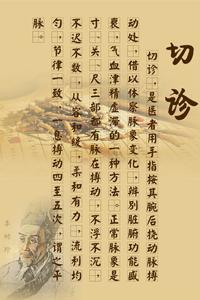 切诊
切诊,是医者用手指按其腕后挠动脉搏
动处,借以体察脉象变化,辨别脏腑功能盛
衰,气血津精虚滞的一种方法。正常脉象是
寸、关、尺三部都有脉在搏动,不浮不沉,
不迟不数,从容和缓,柔和有力,流利均
匀,节律一致,一息搏动四至五次,谓之平
脉。
李时珍